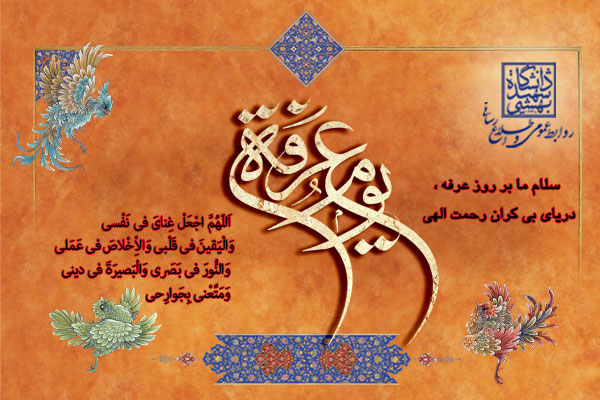 دانشگاه
شهید
بهشتی
روابط عمومی و اطلاع رسانی
سلام ما بر روز عرفه ،
دریای بی کران رحمت الهی
یوم عرفة
اَللّهُمَّ اجْعَلْ غِنایَ فی نَفْسی
وَالْیَقینَ فی قَلْبی وَالْأِخْلاصَ فی عَمَلی
وَالنُّورَ فی بَصَری وَالْبَصیرَةَ فی دینی
وَمَتِّعْنی بِجَوارِحی